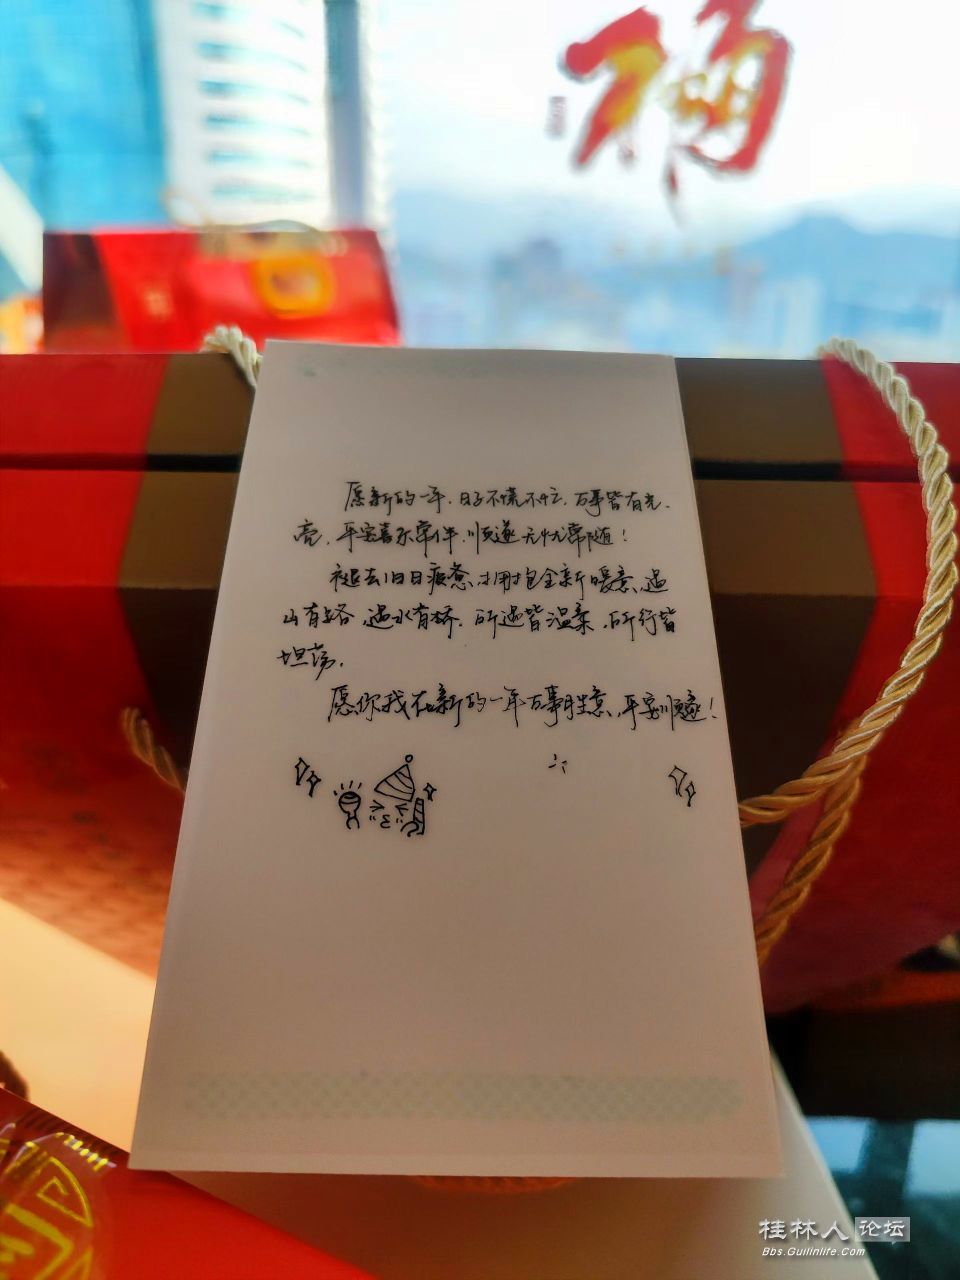 福
愿新的一年，日子不慌不忙，万事皆有光
亮，平安喜乐常伴，顺遂无忧常随！
褪去旧日疲惫，拥抱全新暖意，遇
山有路，遇水有桥，所遇皆温柔，所行皆
坦荡，
愿你我在新的一年万事胜意，平安顺遂！
桂林人论坛
Bbs.Guilinlife.Com